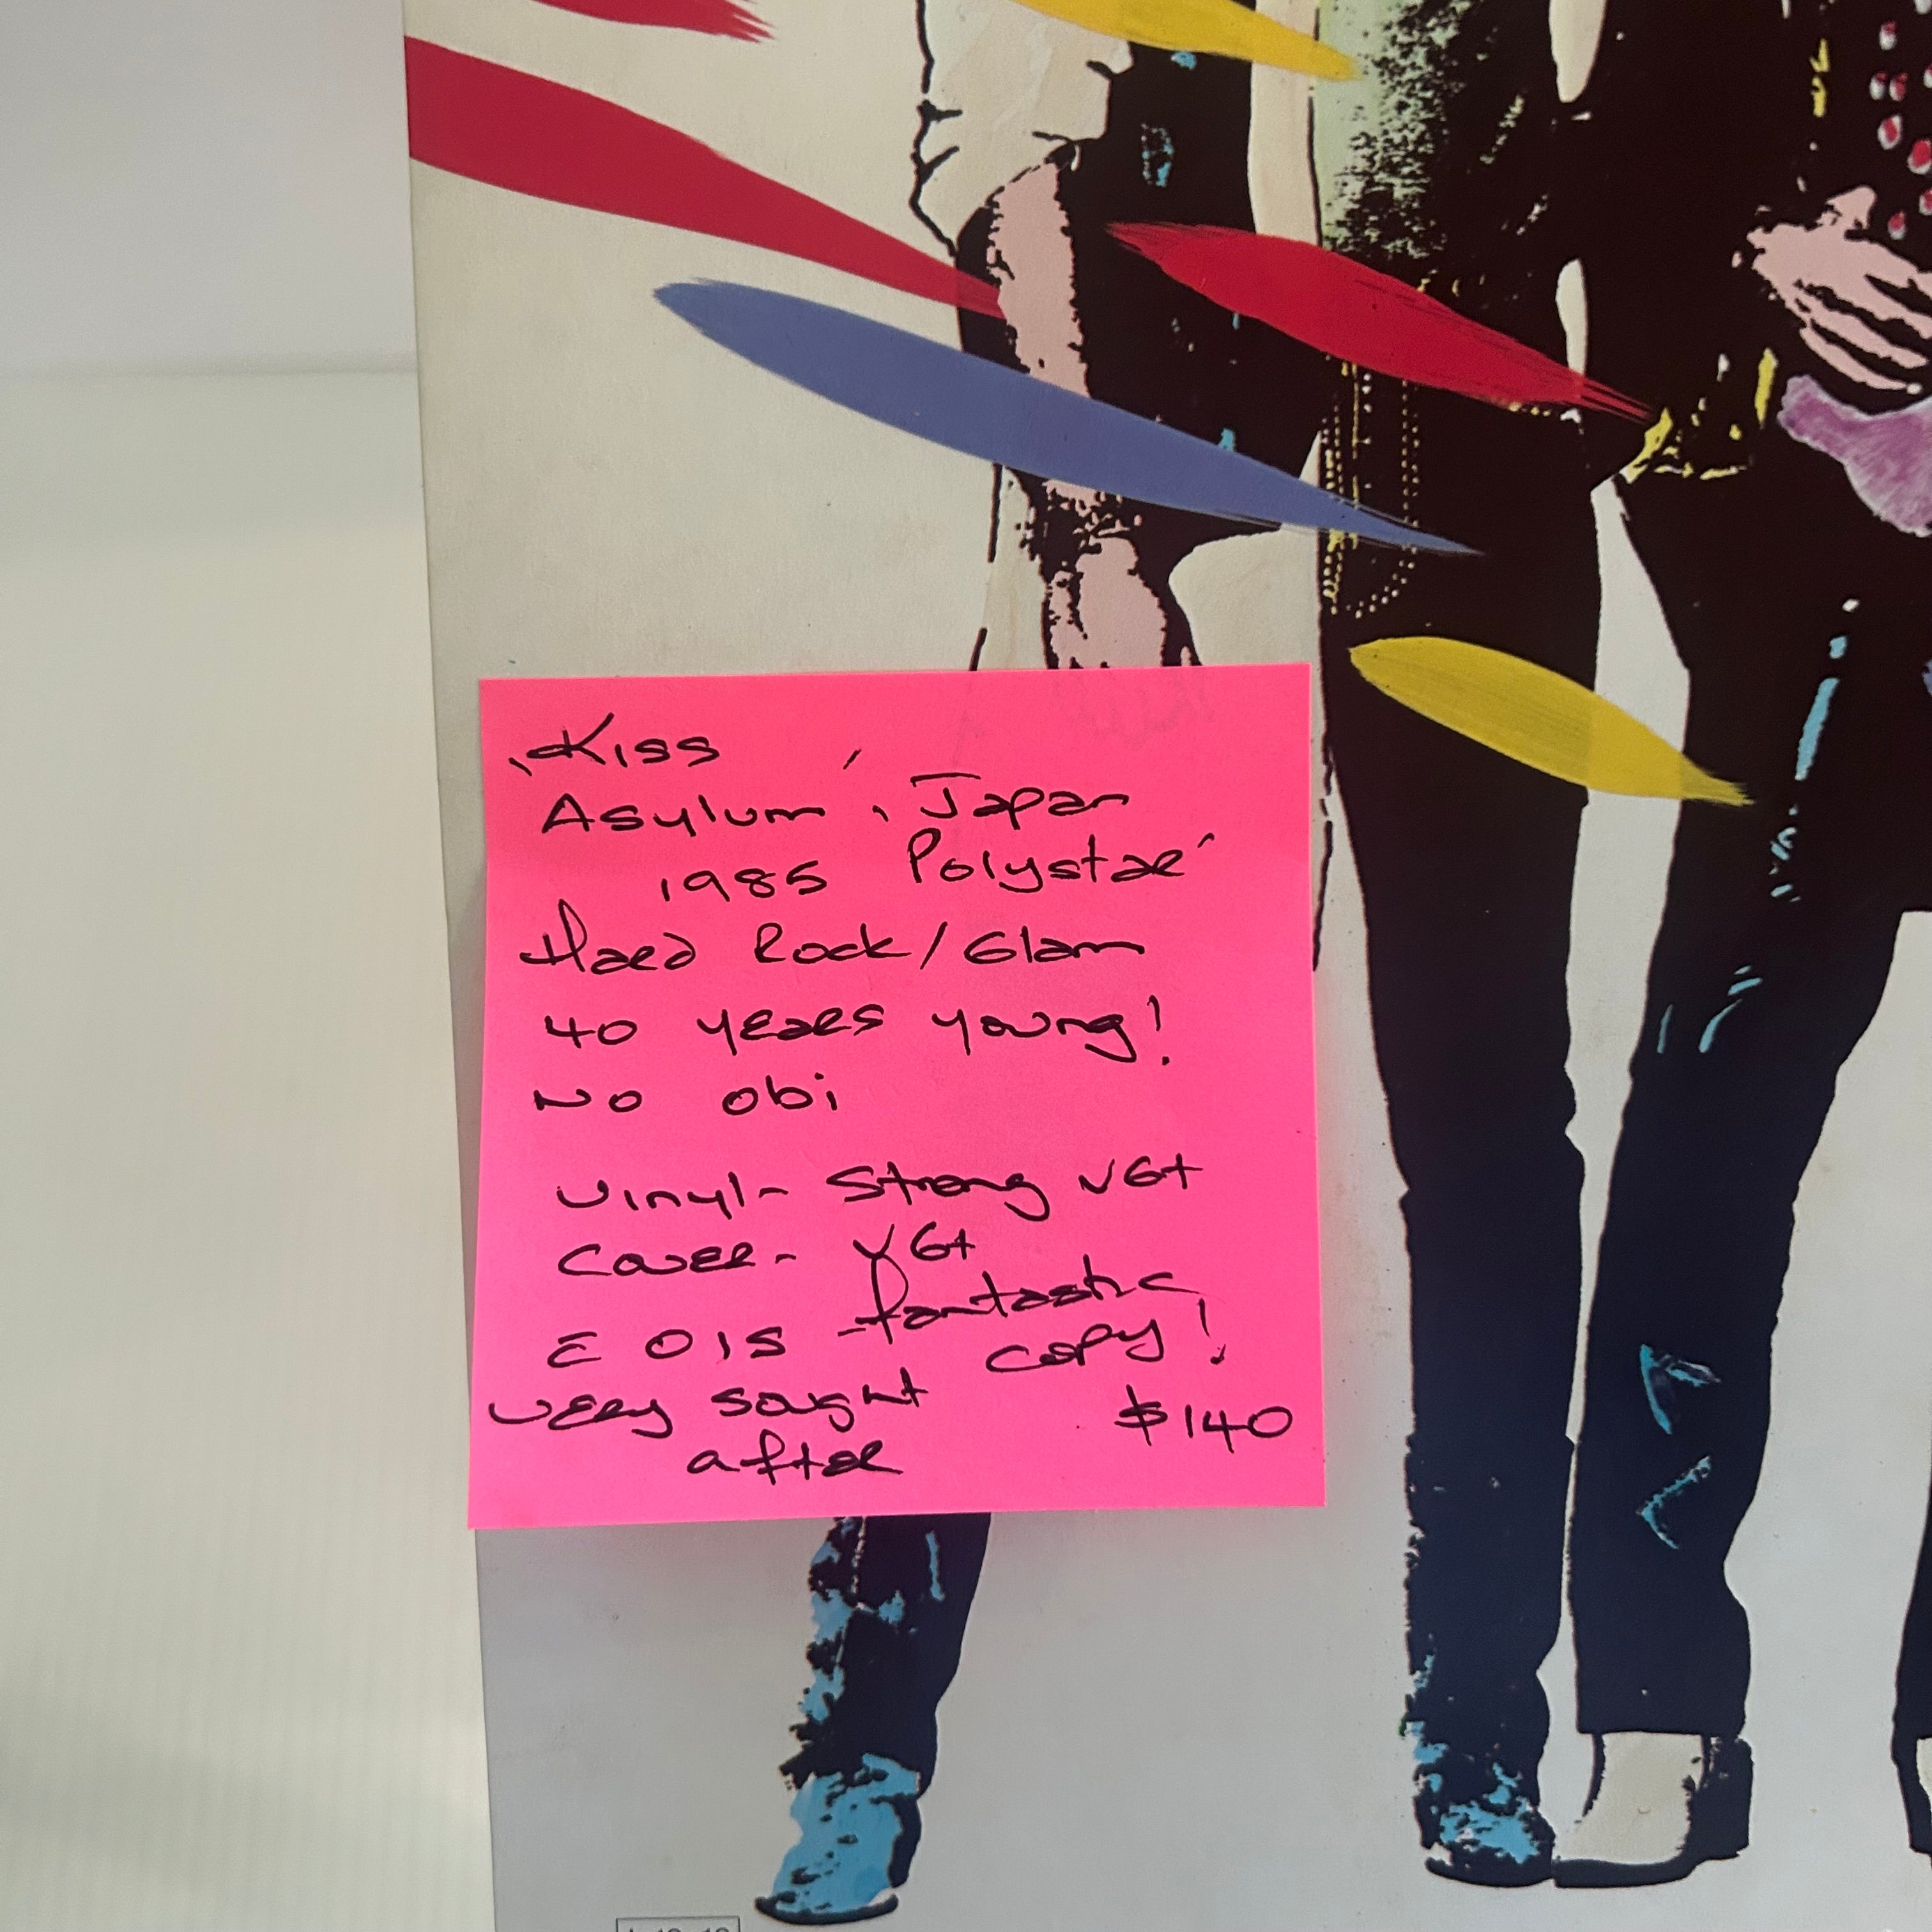 'Kiss
Asylum' 'Japan
1985 Polystar'
Hard Rock/Glam
40 years young!
No obi
Vinyl- Strong VG+
Cover- VG+
c̄ OIS - fantastic
copy!
very sought
after
$140